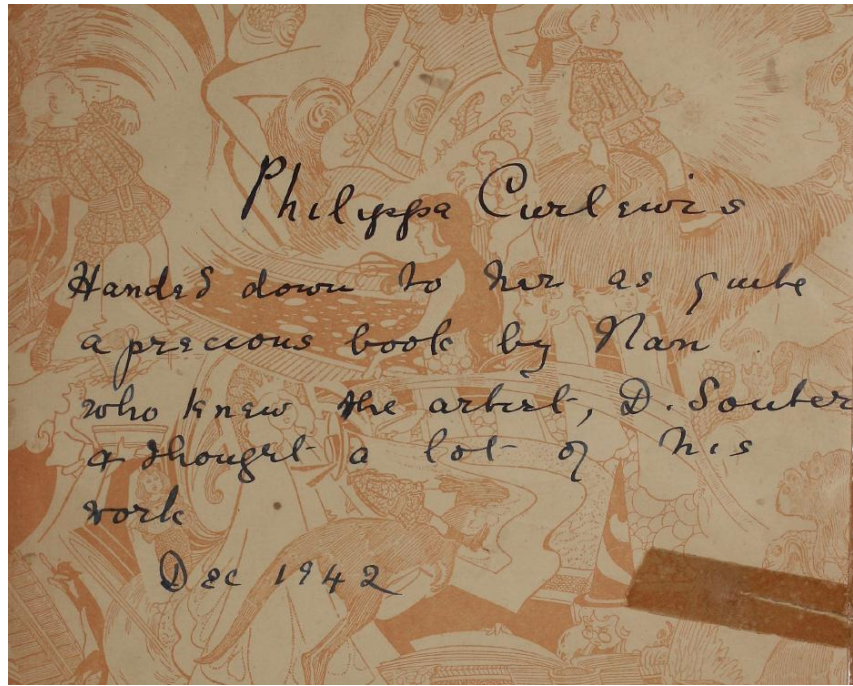 Philippa Curlewis
Handed down to her as quite
a precious book by Nan
who knew the artist, D. Souter
& thought a lot of his
work
Dec 1942